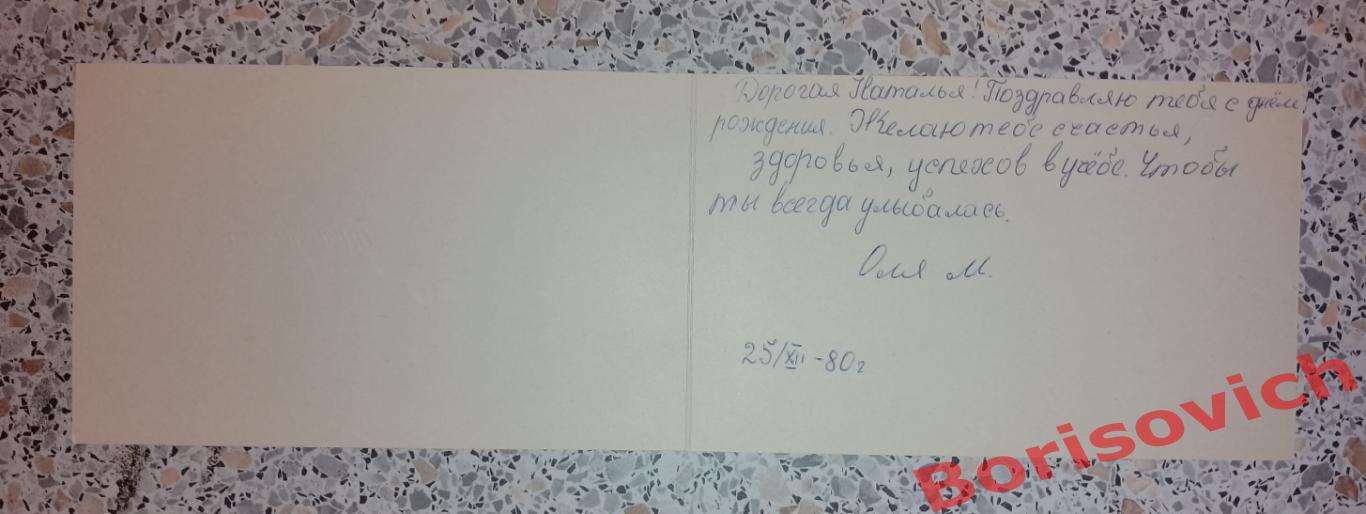 Дорогая Наталья! Поздравляю тебя с днём
рождения. Желаю тебе счастья,
здоровья, успехов в учёбе. Чтобы
ты всегда улыбалась.
Оля М.
25/XII-80г
Borisovich